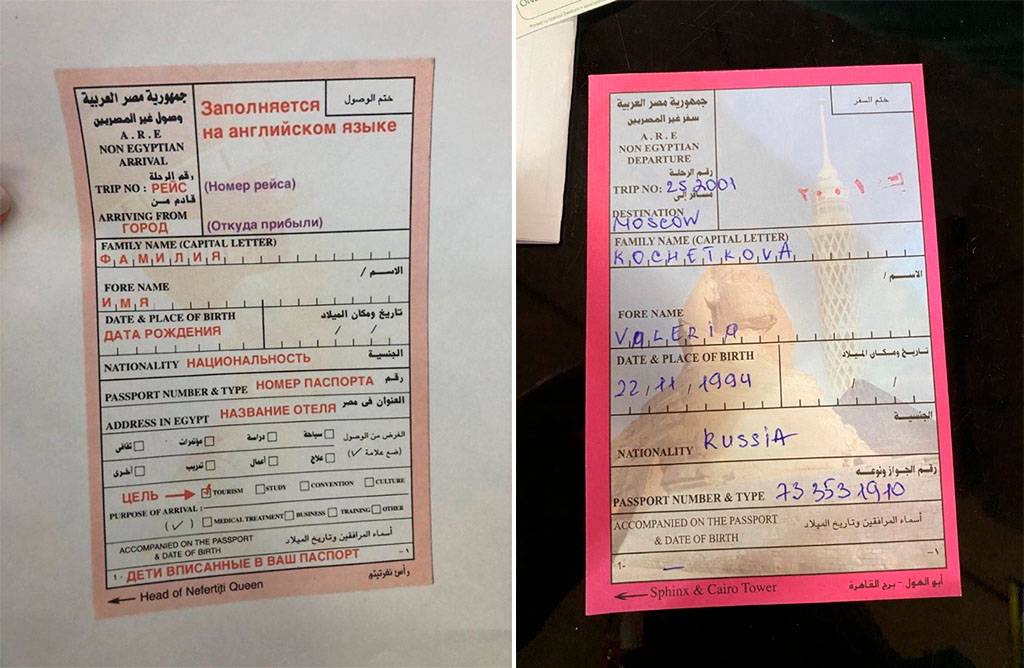 جمهورية مصر العربية
وصول غير المصريين
A . R . E
NON EGYPTIAN
ARRIVAL
رقم الرحلة
TRIP NO : РЕЙС
قادم من
ARRIVING FROM
ГОРОД
Заполняется
на английском языке
ختم الوصول
(Номер рейса)
(Откуда прибыли)
FAMILY NAME (CAPITAL LETTER)
ФАМИЛИЯ
الاسم /
FORE NAME
ИМЯ
DATE & PLACE OF BIRTH تاريخ ومكان الميلاد
ДАТА РОЖДЕНИЯ / /
NATIONALITY НАЦИОНАЛЬНОСТЬ الجنسية
PASSPORT NUMBER & TYPE НОМЕР ПАСПОРТА رقم
ADDRESS IN EGYPT НАЗВАНИЕ ОТЕЛЯ العنوان فى مصر
الغرض من الوصول سياحة دراسة مؤتمرات ثقافى
(ضع علامة ✓) علاج أعمال تدريب أخرى
ЦЕЛЬ TOURISM STUDY CONVENTION CULTURE
PURPOSE OF ARRIVAL :
( ✓ ) MEDICAL TREATMENT BUSINESS TRAINING OTHER
ACCOMPANIED ON THE PASSPORT أسماء المرافقين وتاريخ الميلاد
& DATE OF BIRTH
١ –
1- ДЕТИ ВПИСАННЫЕ В ВАШ ПАСПОРТ
Head of Nefertiti Queen رأس نفرتيتى
ONL
جمهورية مصر العربية
سفر غير المصريين
A . R . E
NON EGYPTIAN
DEPARTURE
رقم الرحلة
TRIP NO: 25 2001
مسافر إلى
DESTINATION
MOSCOW
ختم السفر
FAMILY NAME (CAPITAL LETTER)
KOCHETKOVA
الاسم /
FORE NAME
VALERIA
DATE & PLACE OF BIRTH تاريخ ومكان الميلاد
22, 11, 1994 / /
NATIONALITY RUSSIA الجنسية
رقم الجواز ونوعه
PASSPORT NUMBER & TYPE 73 3531910
ACCOMPANIED ON THE PASSPORT أسماء المرافقين وتاريخ الميلاد
& DATE OF BIRTH
١ –
1- –
Sphinx & Cairo Tower أبو الهول - برج القاهرة